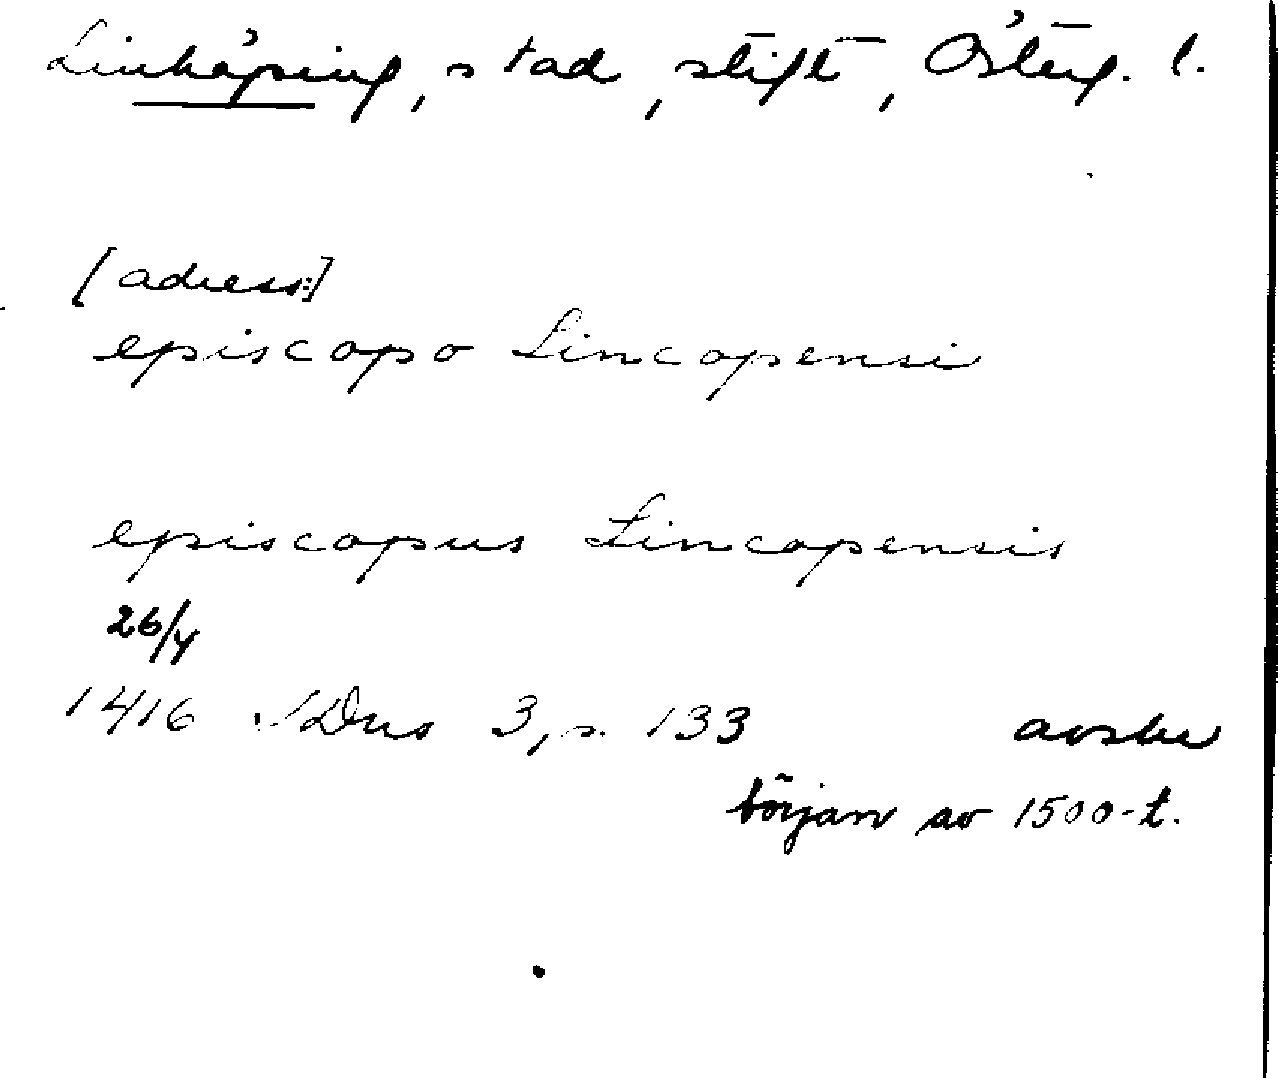 Linköping, stad, stift, Österg. l.
[adress:]
episcopo Lincopensi
episcopus Lincopensis
26/4
1416 SDns 3, s. 133 avskr
början av 1500-t.